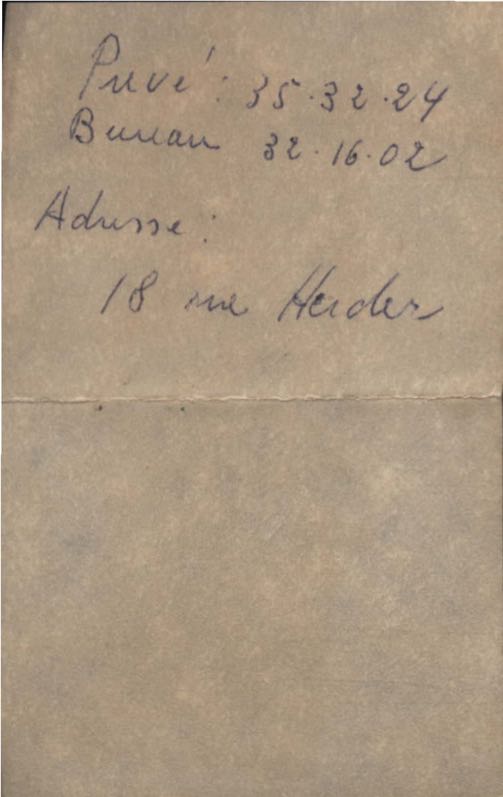 Privé : 35.32.24
Bureau 32.16.02
Adresse :
18 rue Herder